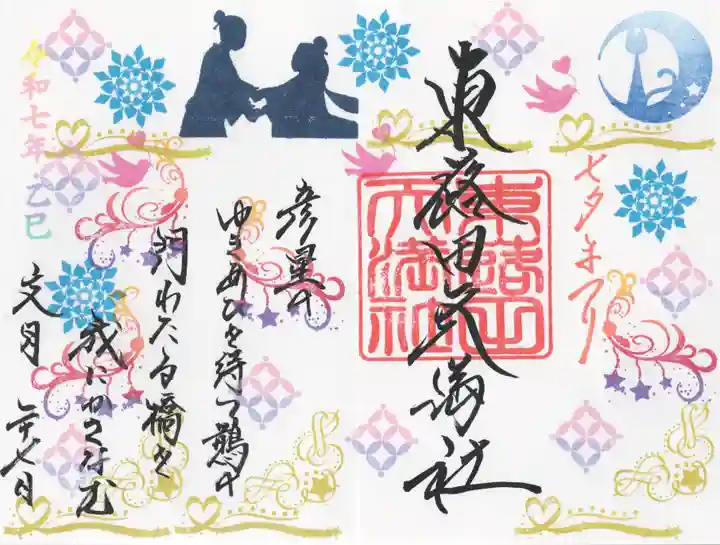 七夕まつり
東蕗田天満社
東蕗田天満社
彦星の
ゆきあひを待つ鵲の
渡わたる橋を
我にかさなむ
令和七年 乙巳
文月 二十七日